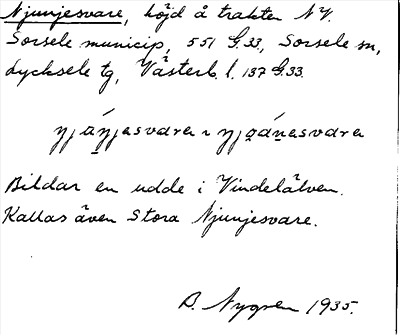 Njunjesvare, höjd å trakten NV.
Sorsele municip, 551 G.33, Sorsele sn,
Lycksele tg, Västerb. l. 137 G.33.
Bildar en udde i Vindelälven.
Kallas även Stora Njunjesvare.
B. Nygren 1935.